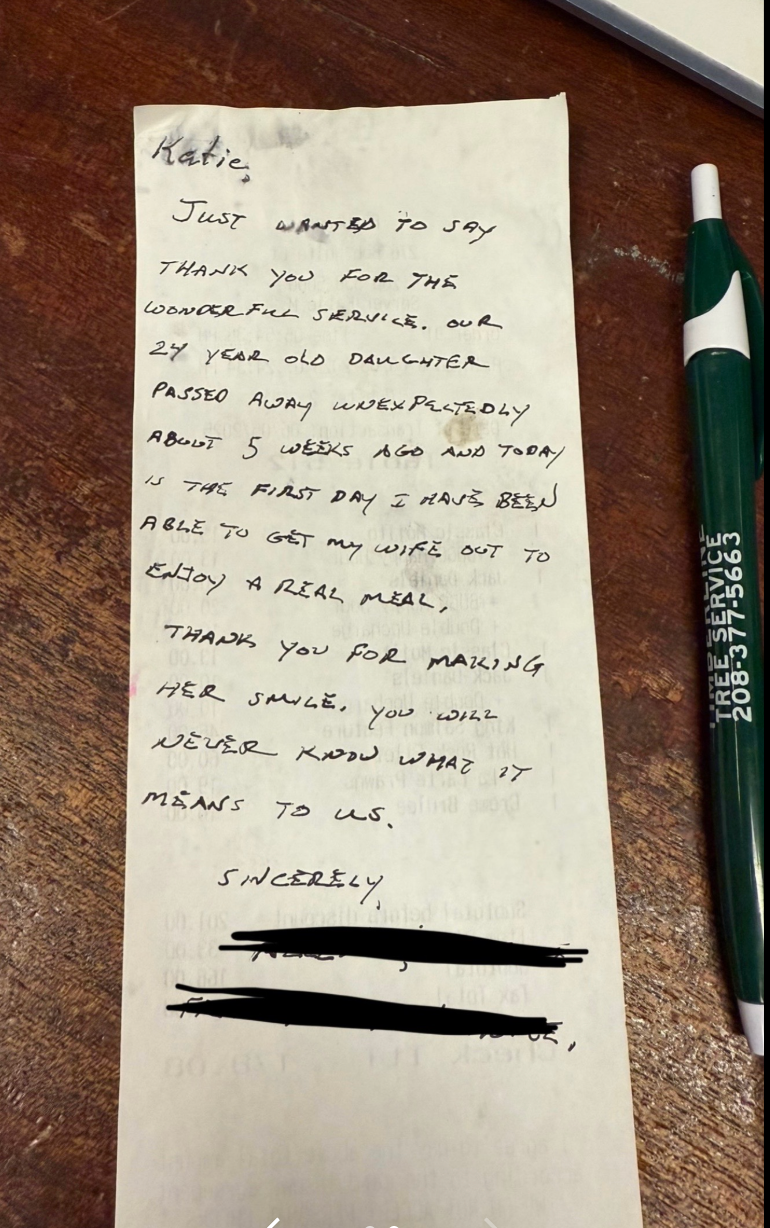 Katie,
JUST WANTED TO SAY
THANK YOU FOR THE
WONDERFUL SERVICE. OUR
24 YEAR OLD DAUGHTER
PASSED AWAY UNEXPECTEDLY
ABOUT 5 WEEKS AGO AND TODAY
IS THE FIRST DAY I HAVE BEEN
ABLE TO GET MY WIFE OUT TO
ENJOY A REAL MEAL.
THANK YOU FOR MAKING
HER SMILE. YOU WILL
NEVER KNOW WHAT IT
MEANS TO US.
SINCERELY,
TIMBERLINE
TREE SERVICE
208-377-5663